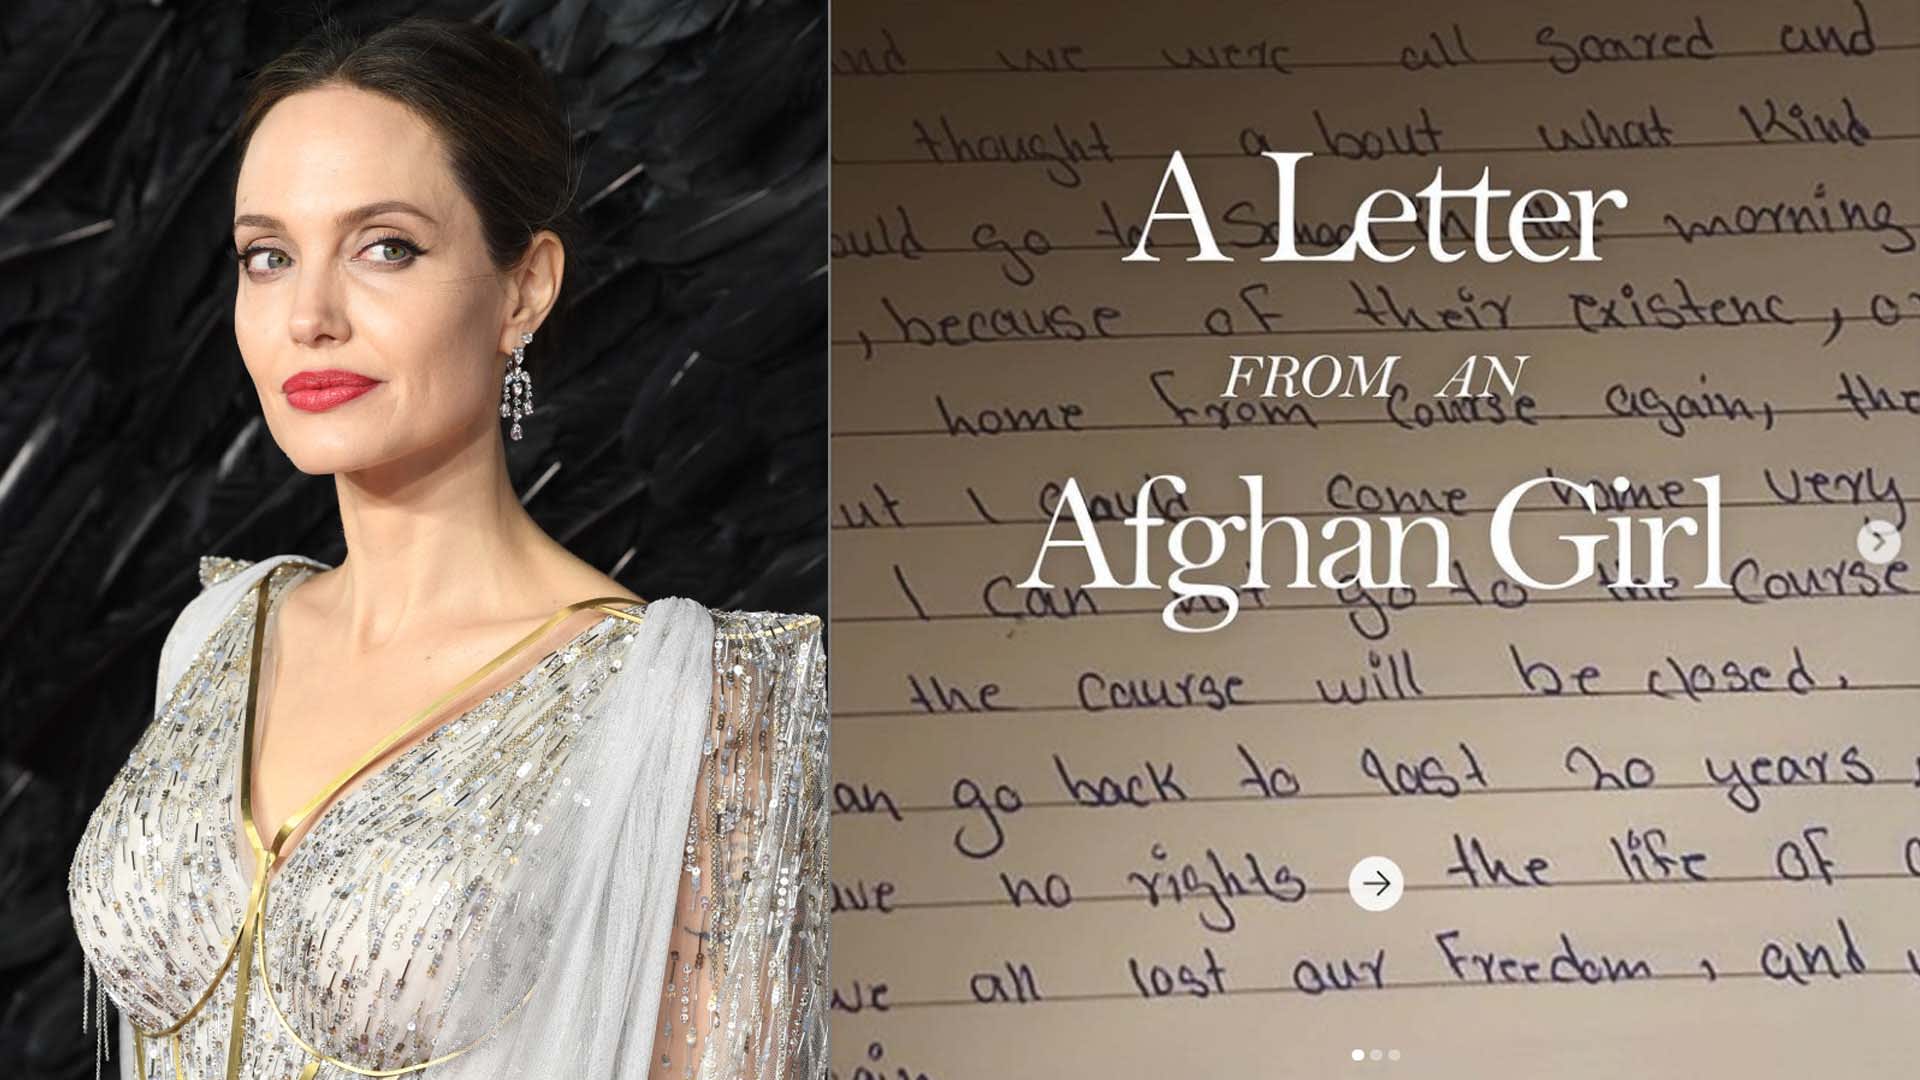 and we were all Scared and
thought a bout what Kind
A Letter
ould go to School in the morning
, because of their existenc,
FROM AN
home from Course again, the
ut I could come home very
Afghan Girl
I can not go to the Course
the Course will be closed.
an go back to last 20 years
ave no rights the life of
we all lost our freedom, and
ain